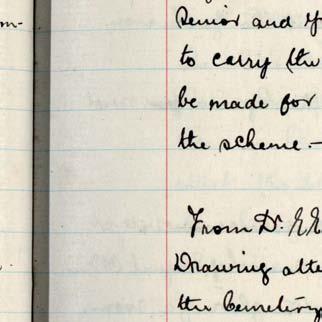 m-
senior and y
to carry the
be made for
the scheme.-
From Dr. E E
Drawing atte
the Cemetery